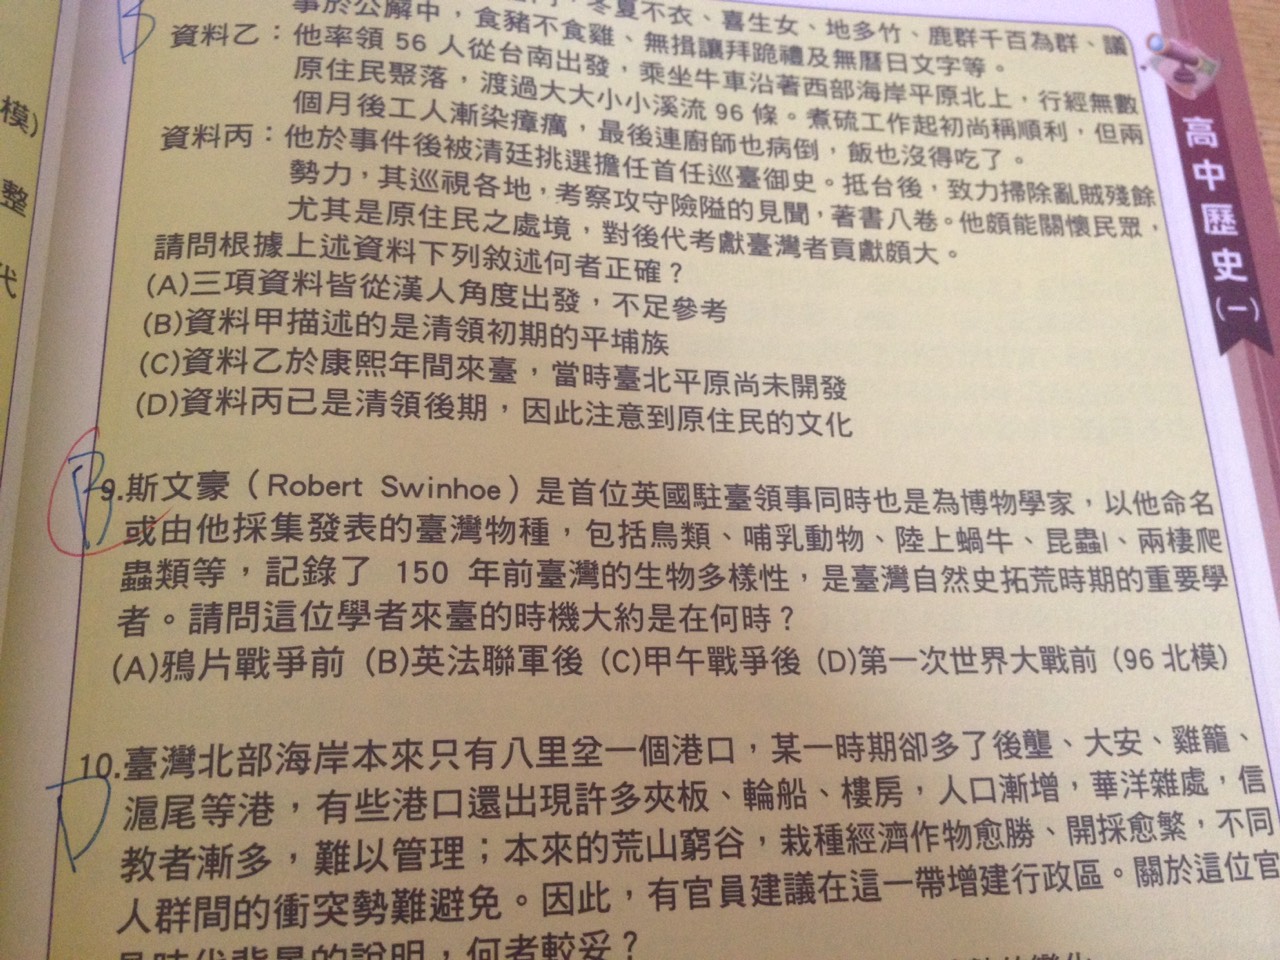 事於公廨中,食豬不食雞、無揖讓拜跪禮及無曆日文字等。
冬夏不衣、喜生女、地多竹、鹿群千百為群、議
資料乙:他率領 56 人從台南出發,乘坐牛車沿著西部海岸平原北上,行經無數
原住民聚落,渡過大大小小溪流 96 條。煮硫工作起初尚稱順利,但兩
個月後工人漸染瘴癘,最後連廚師也病倒,飯也沒得吃了。
資料丙:他於事件後被清廷挑選擔任首任巡臺御史。抵台後,致力掃除亂賊殘餘
勢力,其巡視各地,考察攻守險隘的見聞,著書八卷。他頗能關懷民眾,
尤其是原住民之處境,對後代考獻臺灣者貢獻頗大。
請問根據上述資料下列敘述何者正確?
(A)三項資料皆從漢人角度出發,不足參考
(B)資料甲描述的是清領初期的平埔族
(C)資料乙於康熙年間來臺,當時臺北平原尚未開發
(D)資料丙已是清領後期,因此注意到原住民的文化
B
9.斯文豪(Robert Swinhoe)是首位英國駐臺領事同時也是為博物學家,以他命名
或由他採集發表的臺灣物種,包括鳥類、哺乳動物、陸上蝸牛、昆蟲l、兩棲爬
蟲類等,記錄了 150 年前臺灣的生物多樣性,是臺灣自然史拓荒時期的重要學
者。請問這位學者來臺的時機大約是在何時?
(A)鴉片戰爭前 (B)英法聯軍後 (C)甲午戰爭後 (D)第一次世界大戰前(96 北模)
D
10.臺灣北部海岸本來只有八里坌一個港口,某一時期卻多了後壟、大安、雞籠、
滬尾等港,有些港口還出現許多夾板、輪船、樓房,人口漸增,華洋雜處,信
教者漸多,難以管理;本來的荒山窮谷,栽種經濟作物愈勝、開採愈繁,不同
人群間的衝突勢難避免。因此,有官員建議在這一帶增建行政區。關於這位官
員時代背景的說明,何者較妥?
高中歷史(一)
模)
整
代